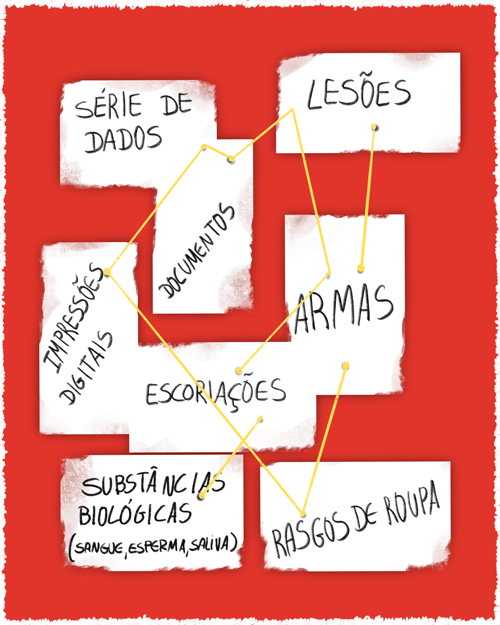 SÉRIE DE
DADOS
LESÕES
DOCUMENTOS
IMPRESSÕES
DIGITAIS
ARMAS
ESCORIAÇÕES
SUBSTÂNCIAS
BIOLÓGICAS
(SANGUE, ESPERMA, SALIVA)
RASGOS DE ROUPA